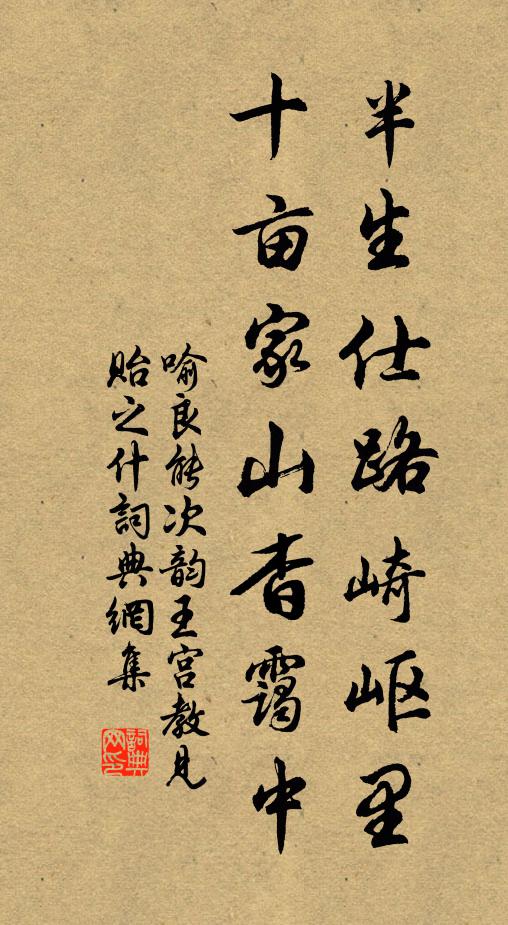 半生仕路崎岖里
十亩家山杳霭中
喻良能次韵王宫教见
贻之什詞典網集
詞典
网印